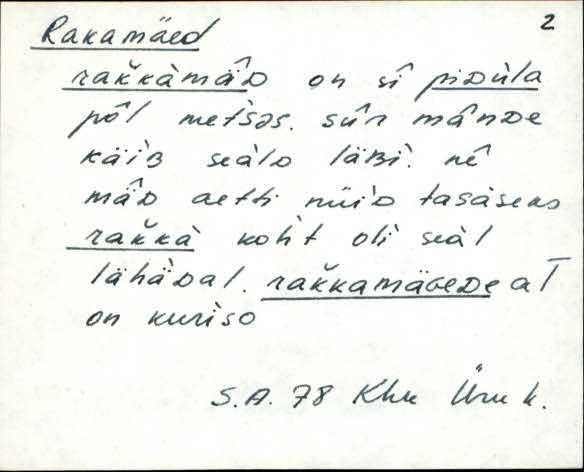 2
Rakamäed
rak̆kàmä̂D on sî piDùla
pôl metsəs. sûr mânDe
käìB seàlD läBì. nê
mä̂D aetti nüìD tasàseks
rak̆kà koht́ olì seàl
lähäDal. rak̆kamäGeDe al̄
on kurìsD
S.A. 78 Khk Üru k.